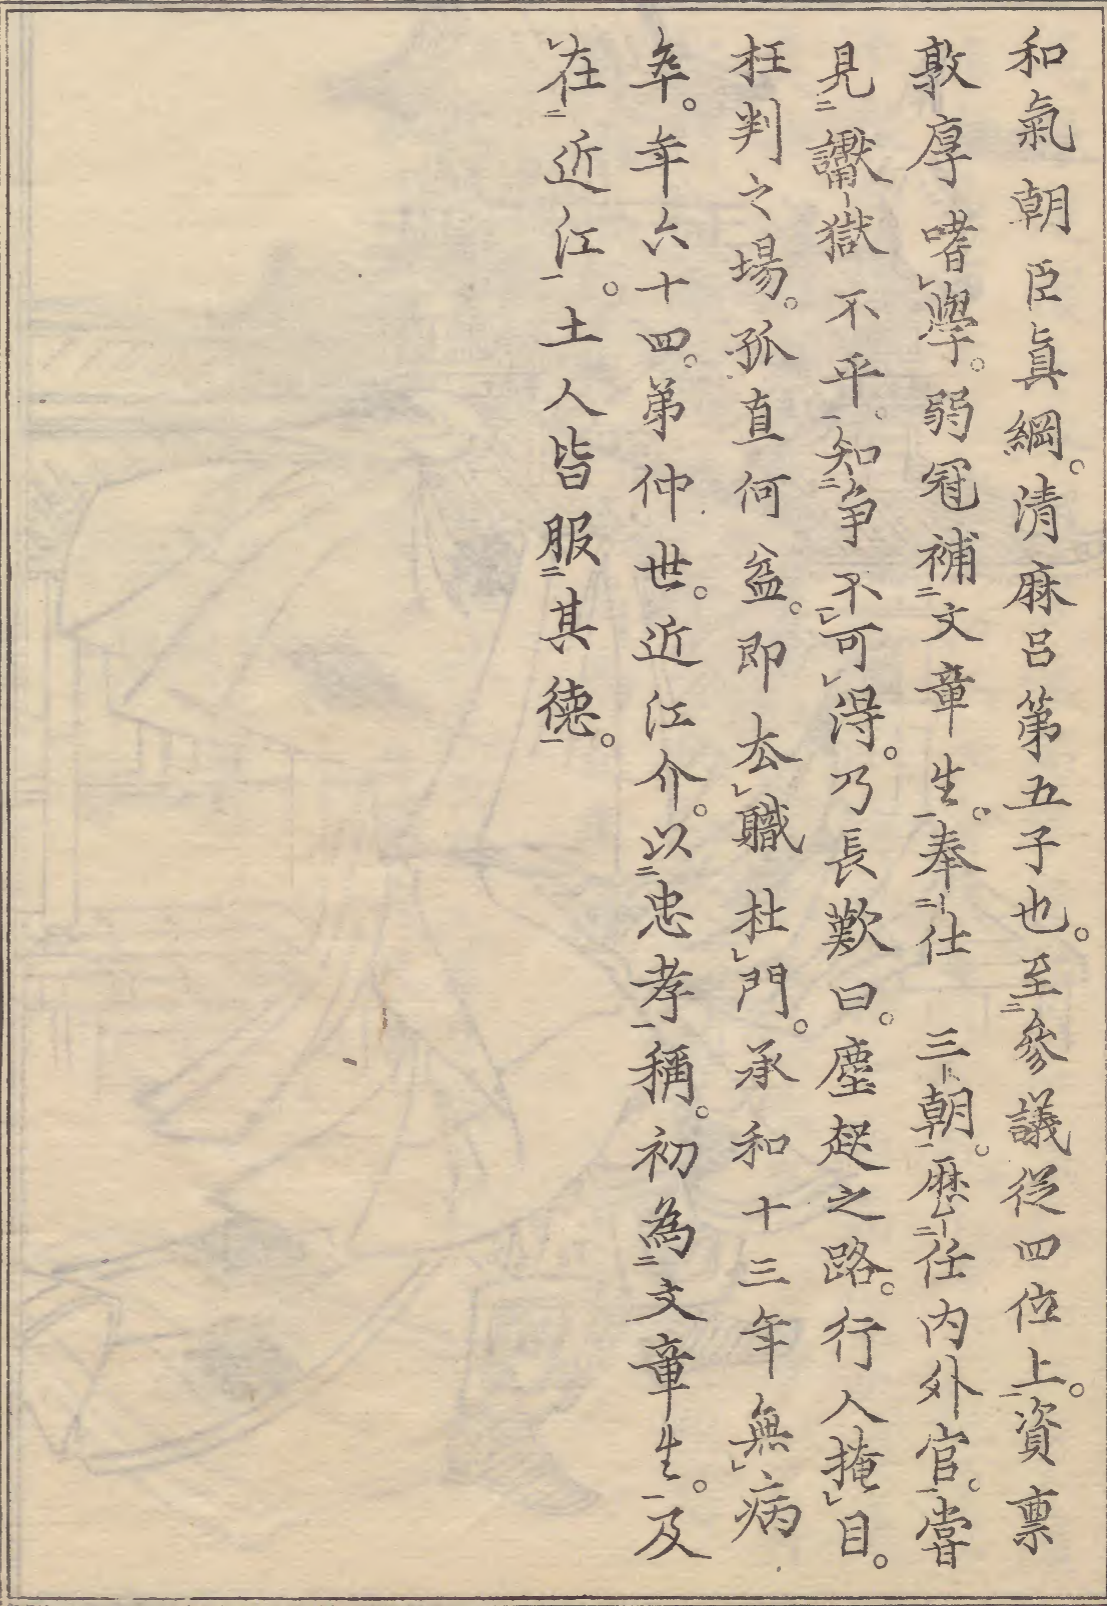 和氣朝臣眞綱。清麻呂第五子也。至參議從四位上。資禀
敦厚嗜學。弱冠補文章生。奉仕　三朝。歷任内外官。嘗
見讞獄不平。知争不可得。乃長歎曰。塵起之路。行人掩目。
枉判之場。孤直何益。即去職杜門。承和十三年無病
卒。年六十四。弟仲世。近江介。以忠孝稱。初為文章生。及
在近江。土人皆服其德。